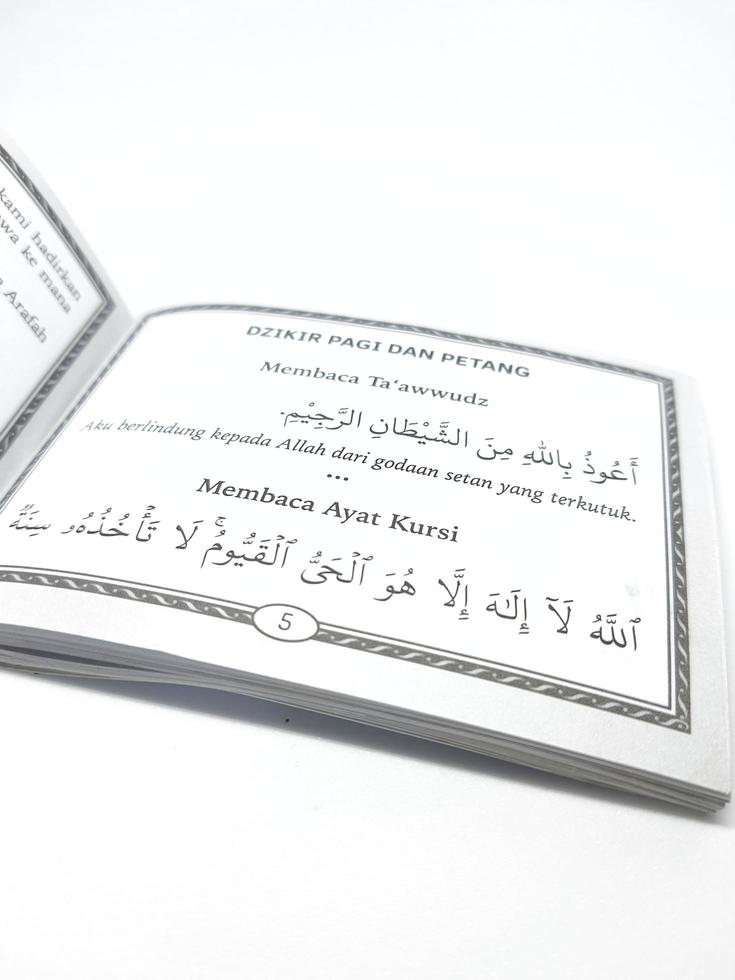 kami hadirkan
ke mana
Arafah
DZIKIR PAGI DAN PETANG
Membaca Ta‘awwudz
أَعُوذُ بِاللهِ مِنَ الشَّيْطَانِ الرَّجِيْمِ.
Aku berlindung kepada Allah dari godaan setan yang terkutuk.
•••
Membaca Ayat Kursi
ٱللَّهُ لَآ إِلَـٰهَ إِلَّا هُوَ ٱلْحَىُّ ٱلْقَيُّومُ ۚ لَا تَأْخُذُهُۥ سِنَةٌ
5